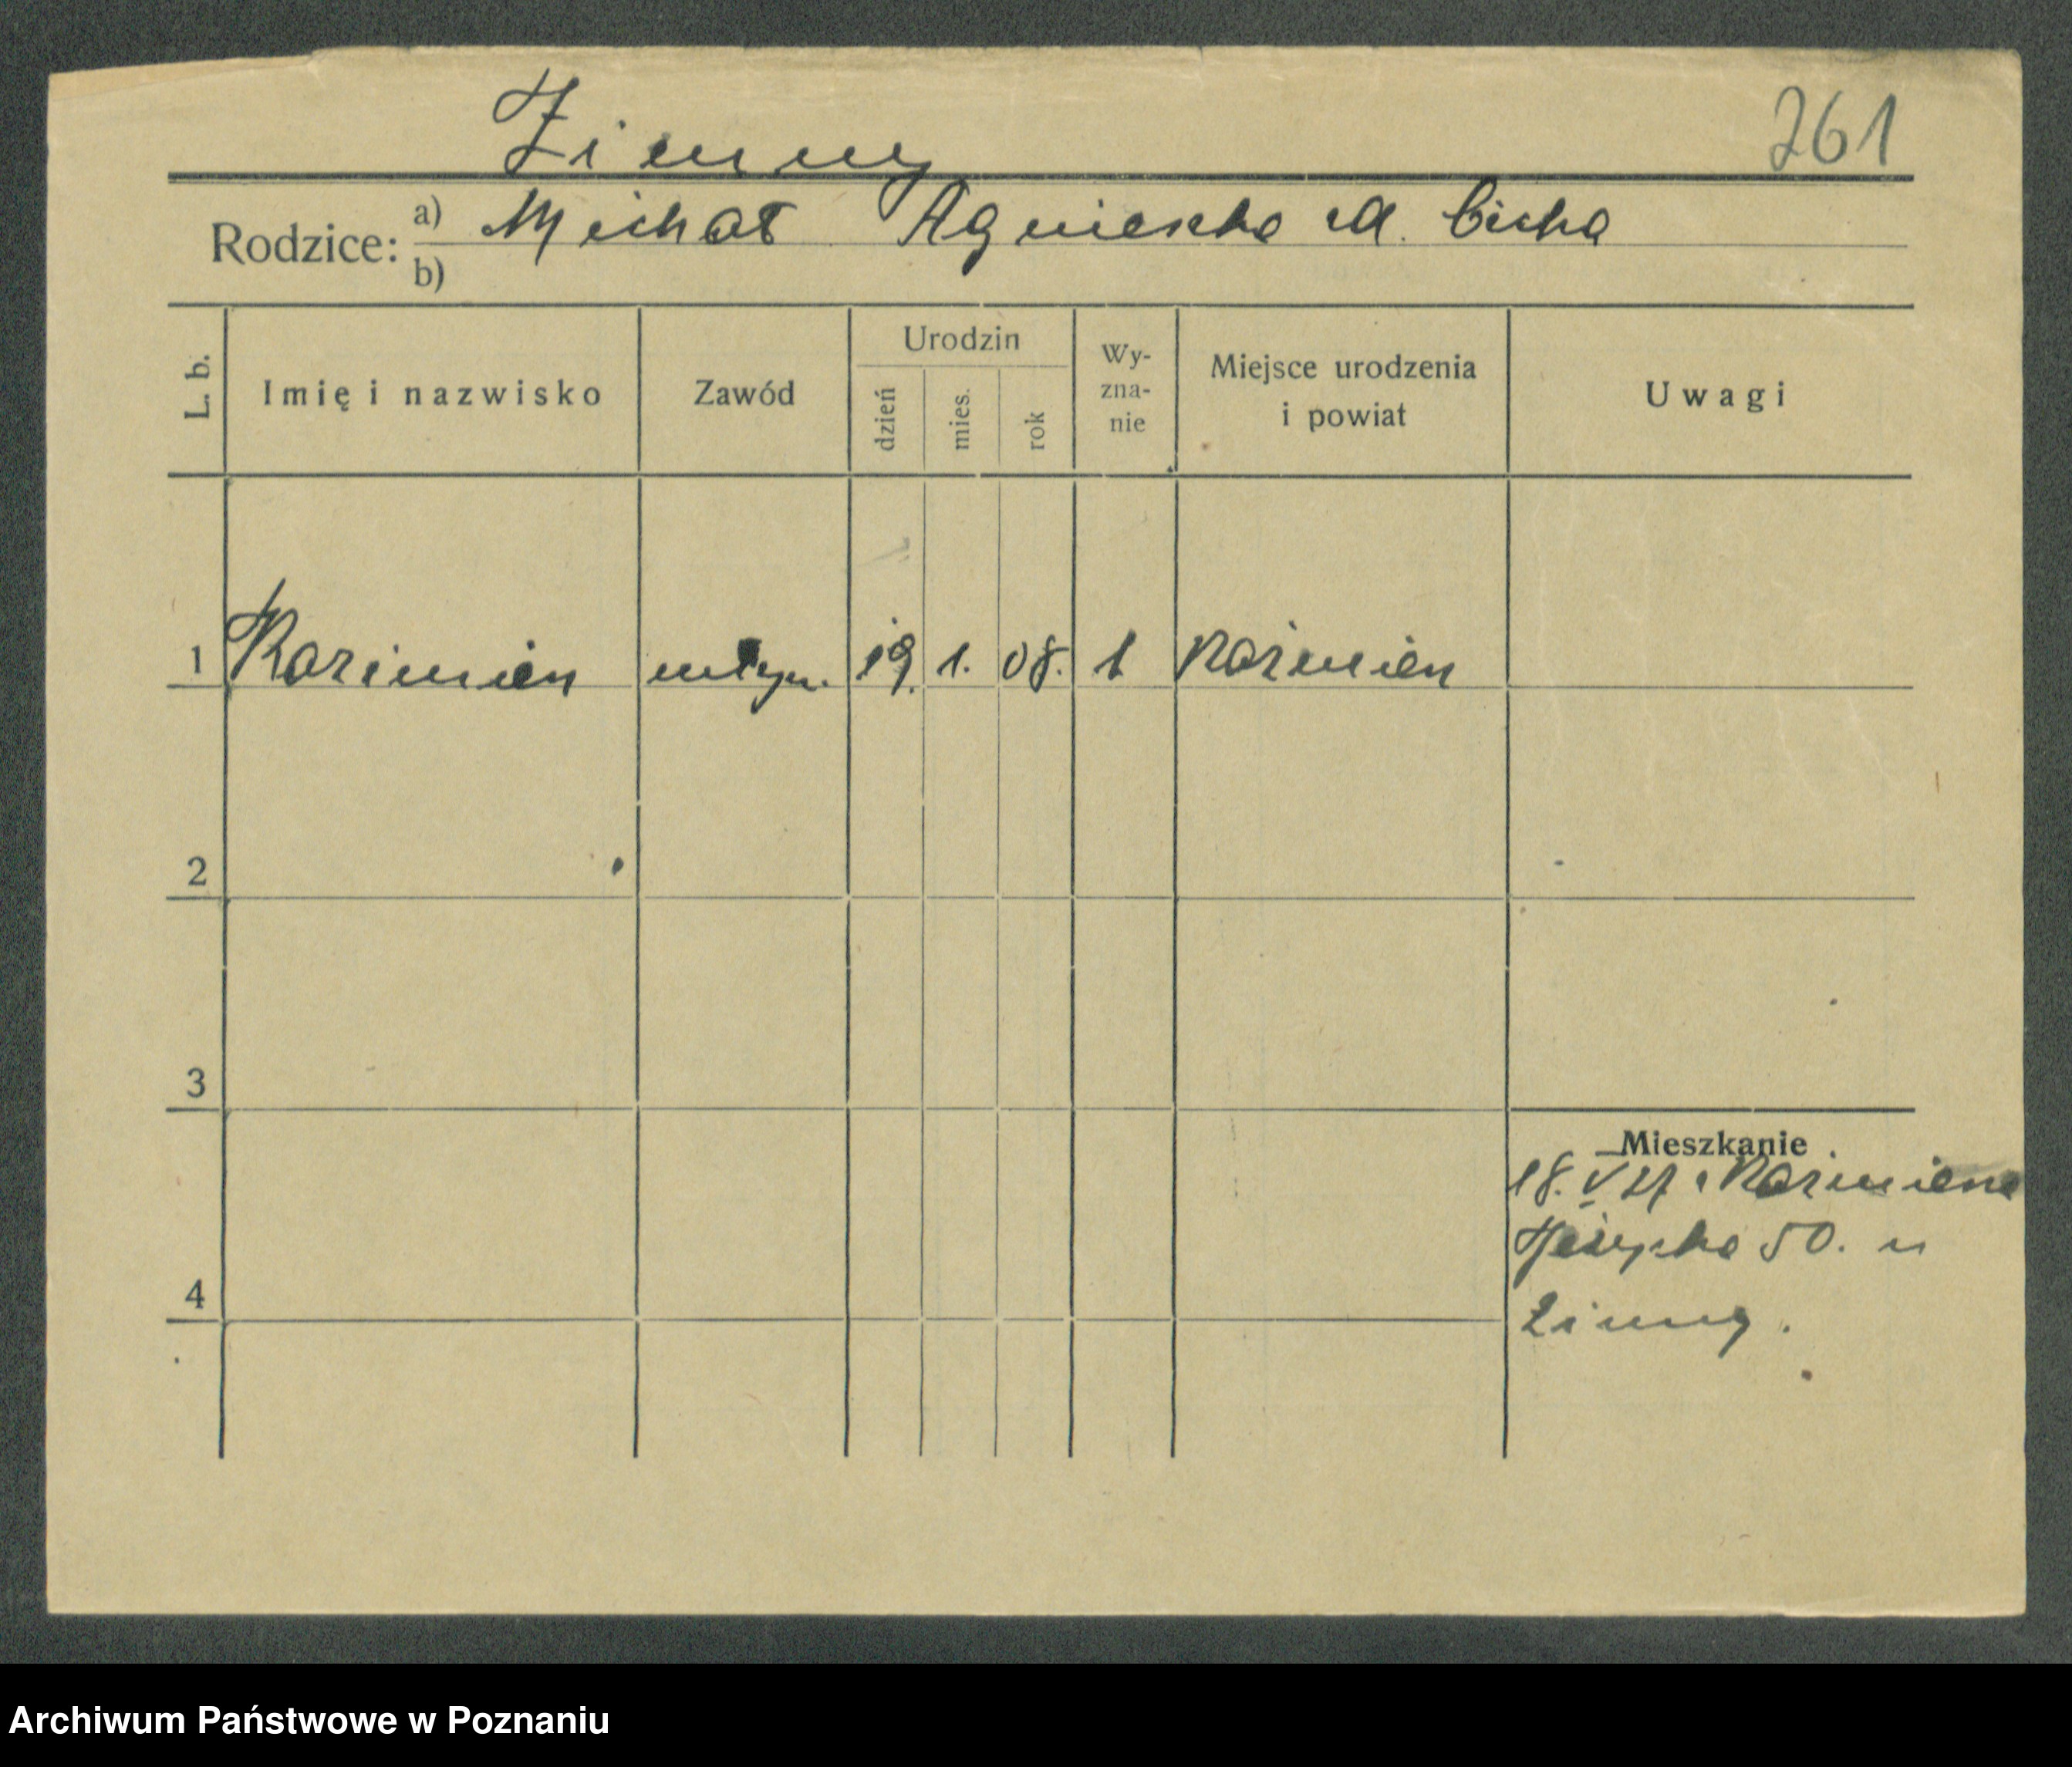 Zimny
261
Rodzice: a) Michał Agnieszka Cicha
b)
L. b.
Imię i nazwisko
Zawód
Urodzin
dzień
mies.
rok
Wy-
zna-
nie
Miejsce urodzenia
i powiat
Uwagi
1 młyn. 19. 1. 08.
2
3
4
Mieszkanie
18. V 27
50. u
Zimny.
Archiwum Państwowe w Poznaniu